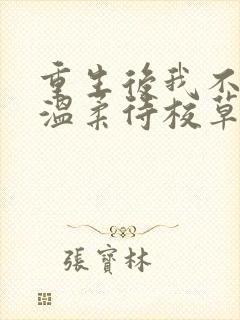 重生後我不
溫柔待校草
張寶林